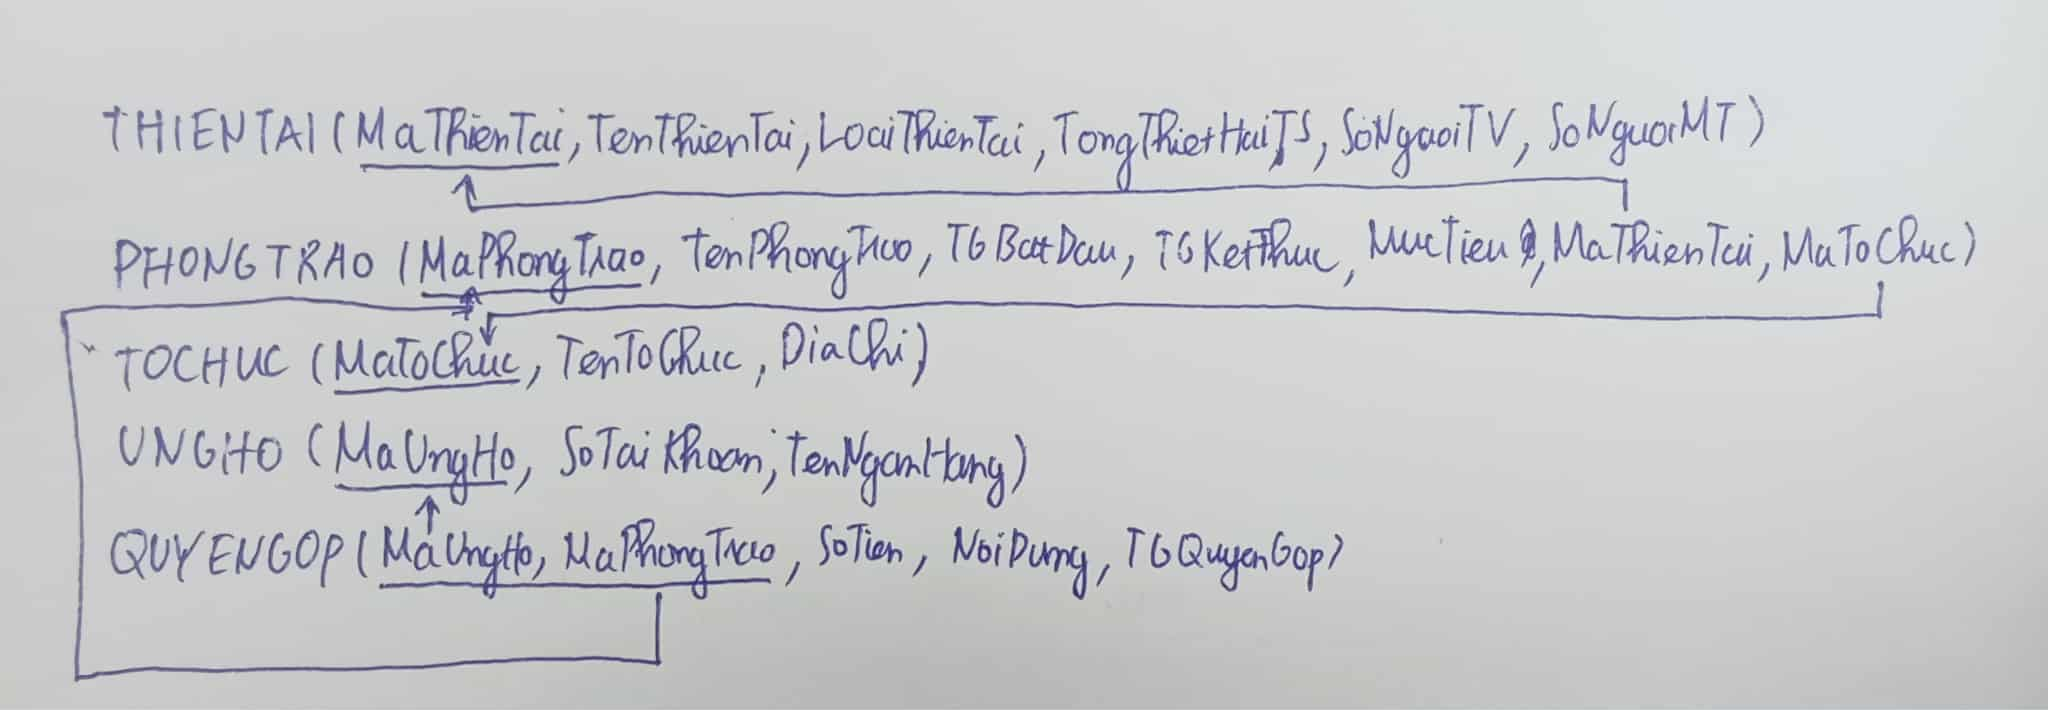 THIENTAI (MaThienTai, TenThienTai, LoaiThienTai, TongThietHaiTS, SoNguoiTV, SoNguoiMT)
PHONGTRAO (MaPhongTrao, TenPhongTrao, TGBatDau, TGKetThuc, MucTieu, MaThienTai, MaToChuc)
TOCHUC (MaToChuc, TenToChuc, DiaChi)
UNGHO (MaUngHo, SoTaiKhoan, TenNganHang)
QUYENGOP (MaUngHo, MaPhongTrao, SoTien, NoiDung, TGQuyenGop)